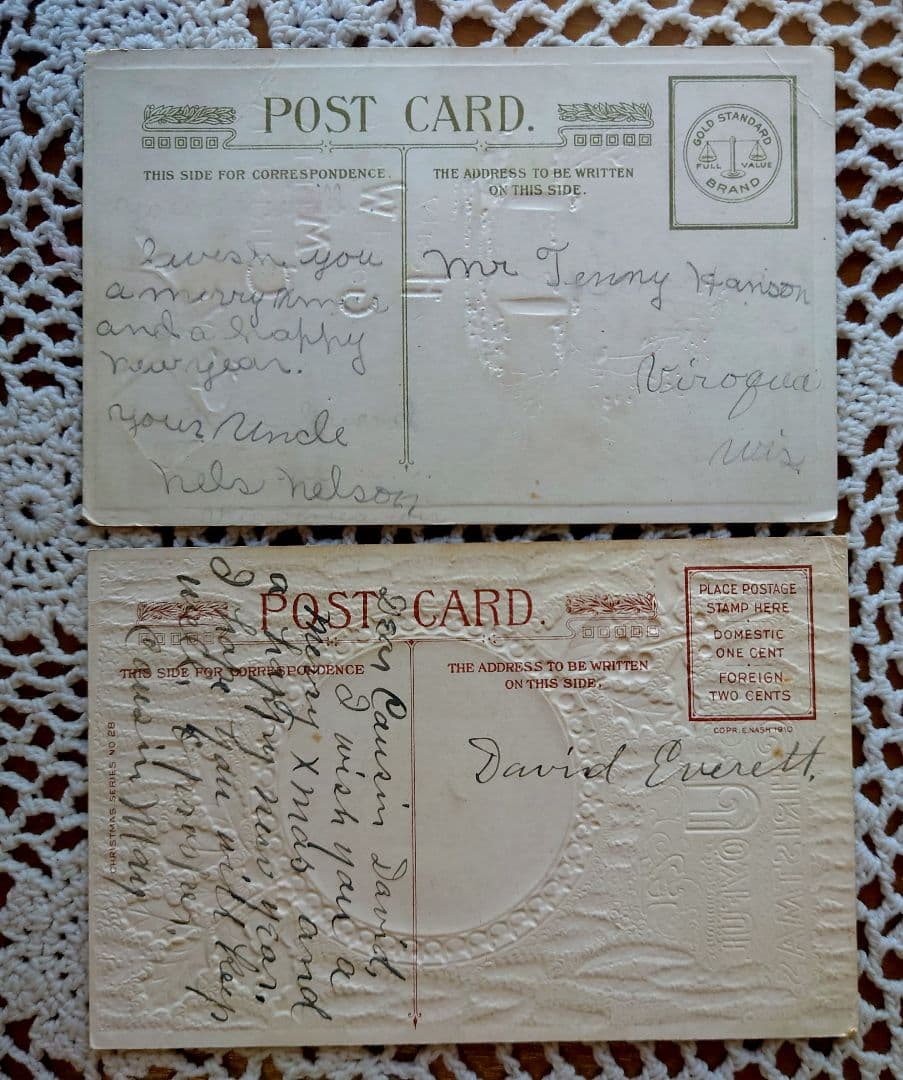 POST CARD.
THIS SIDE FOR CORRESPONDENCE.
THE ADDRESS TO BE WRITTEN
ON THIS SIDE.
GOLD STANDARD
FULL VALUE
BRAND
I wish you
a merry xmas
and a happy
new year.
your Uncle
Nels Nelson
Mr Tenny Hanson
Viroqua
Wis.
POST CARD.
THIS SIDE FOR CORRESPONDENCE
THE ADDRESS TO BE WRITTEN
ON THIS SIDE.
PLACE POSTAGE
STAMP HERE
DOMESTIC
ONE CENT
FOREIGN
TWO CENTS
COPR. E. NASH 1910
CHRISTMAS SERIES NO 28
Dear Cousin David,
I wish you a
merry xmas and
a happy new year.
I hope you will keep
well, & prosper,
Cousin May
David Everett.